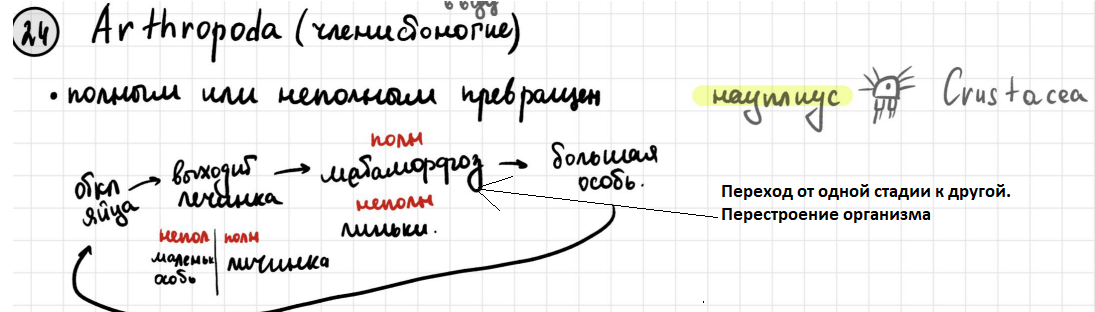 в виду
24 Arthropoda (членистоногие)
• полным или неполным превращен
науплиус Crustacea
откл яйца → выходит лечинка → метаморфоз → большая особь.
полн
неполн
линьки.
непол | полн
маленьк особь | личинка
Переход от одной стадии к другой.
Перестроение организма